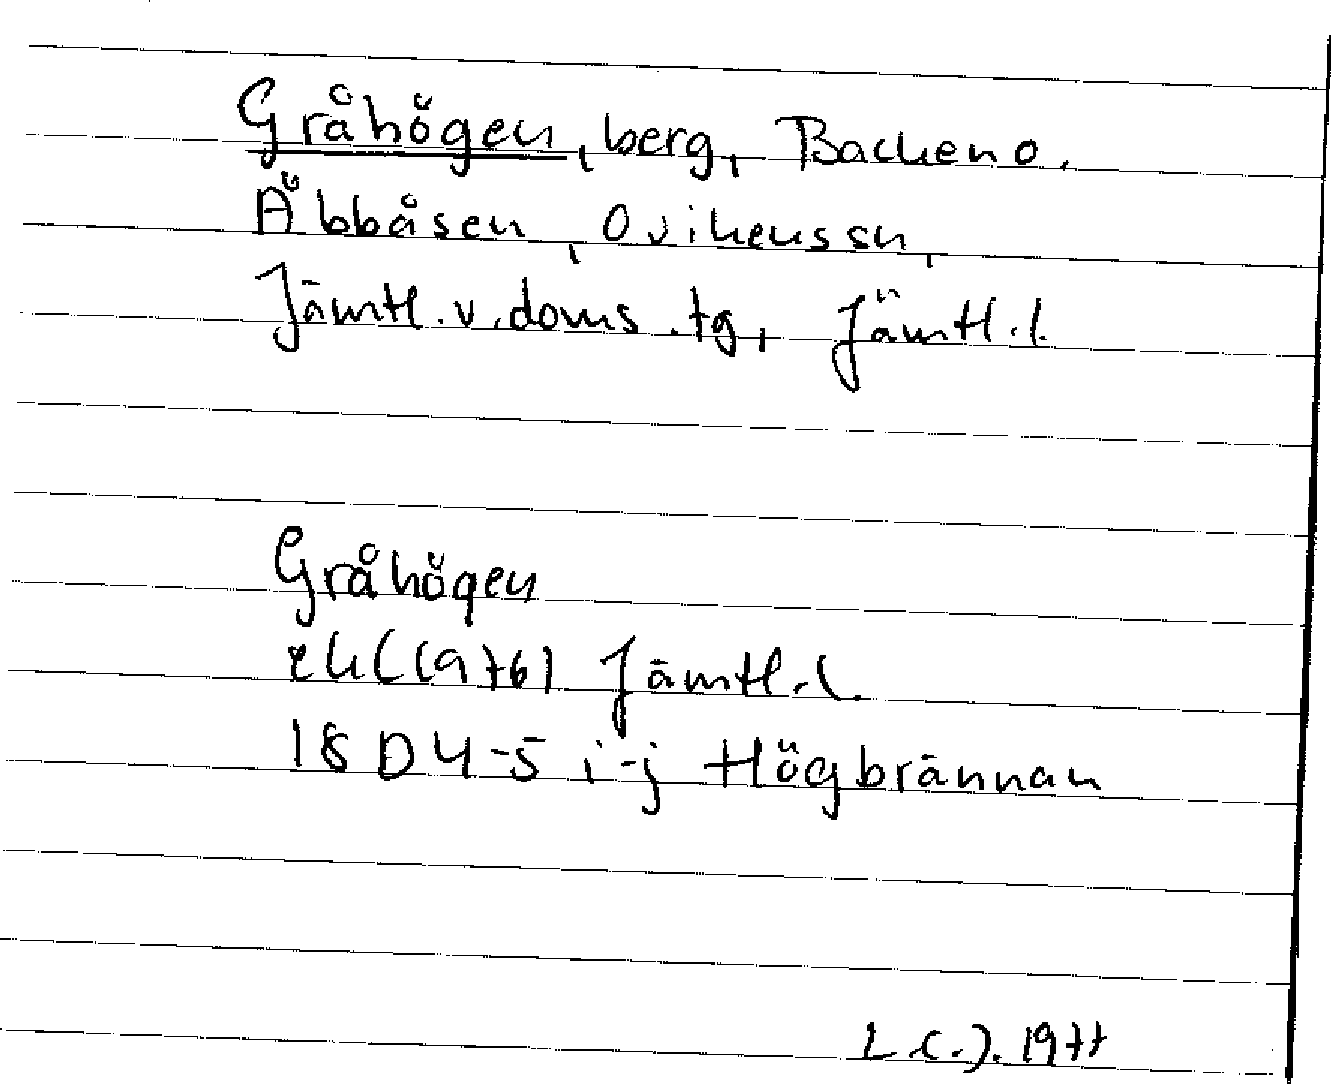 Gråhögen, berg, Backen o.
Äbbåsen, Ovikens sn,
Jämtl. v. doms. tg, Jämtl. l.
Gråhögen
ek (1976) Jämtl. l.
18 D 4-5 i-j Högbrännan
L.C.J. 1977